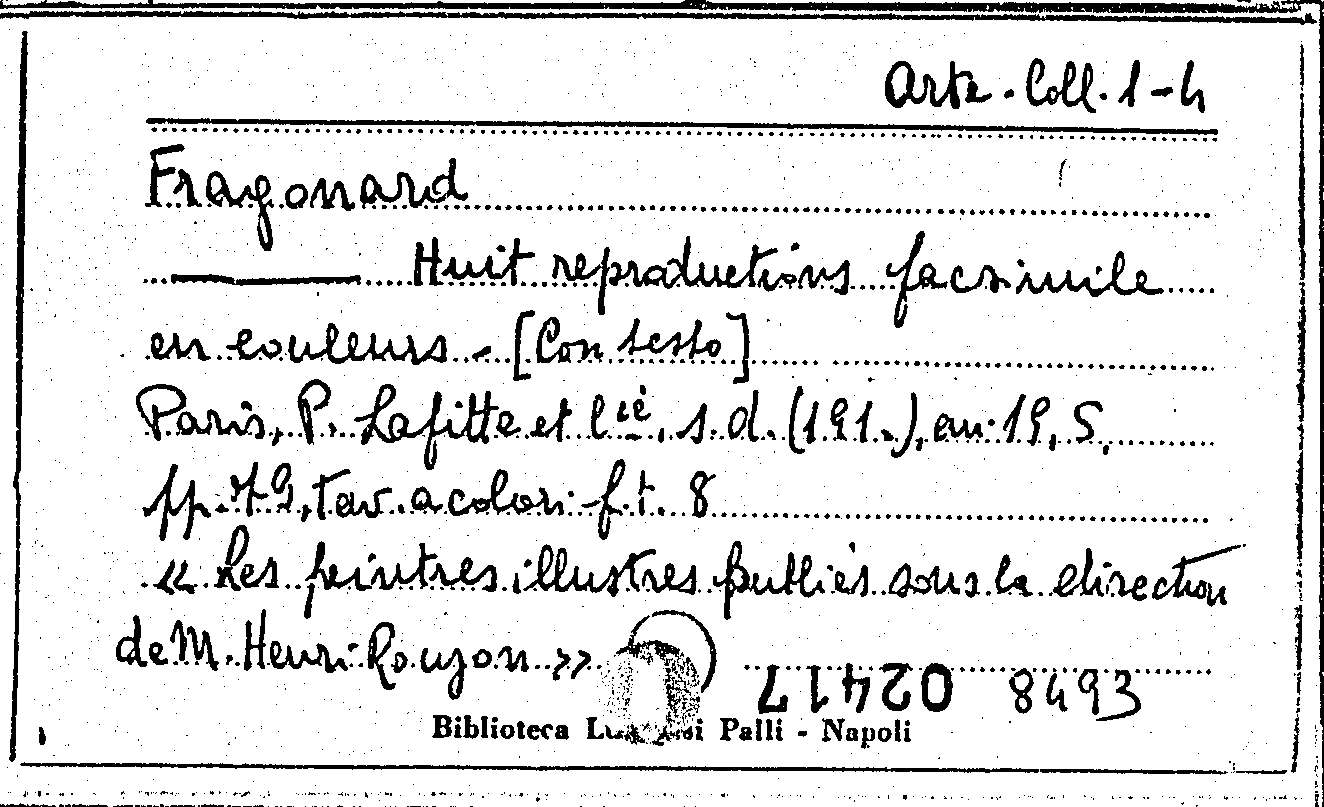 Arte. Coll. 1-4
Fragonard
Huit reproductions facsimile
en couleurs - [Con testo]
Paris, P. Lafitte et Cie, s.d. (191.), cm. 19,5,
pp. 79, tav. a colori f.t. 8
« Les peintres illustres publiés sous la direction
de M. Henri Roujon »
02417 8493
Biblioteca Lu si Palli - Napoli